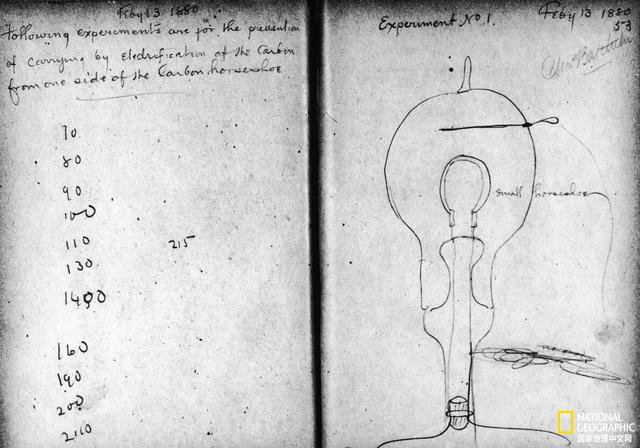 Feby 13 1880
Following experiments are for the prevention
of carrying by Electrification of the Carbon
from one side of the Carbon horseshoe
70
80
90
100
110
215
130
1490
160
190
200
2110
Experiment No. 1.
Feby 13 1880
53
small horseshoe
NATIONAL
GEOGRAPHIC
国家地理中文网